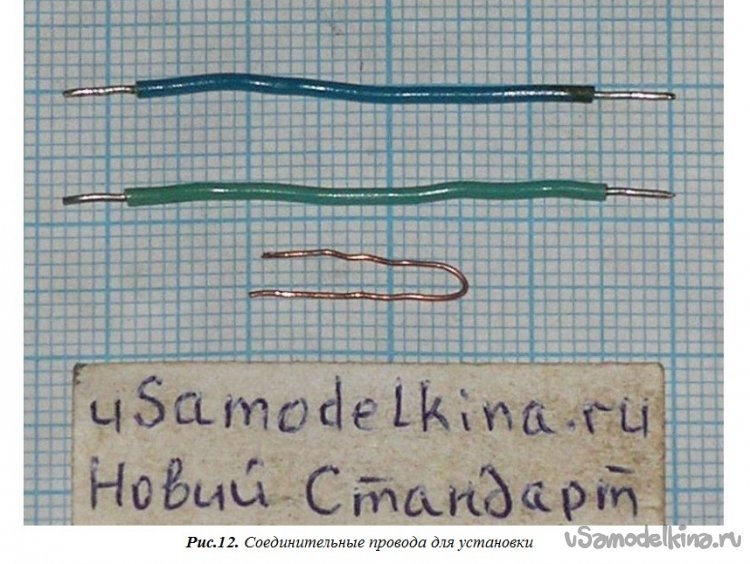 uSamodelkina.ru
Новий Стандарт
Рис.12. Соединительные провода для установки
uSamodelkina.ru